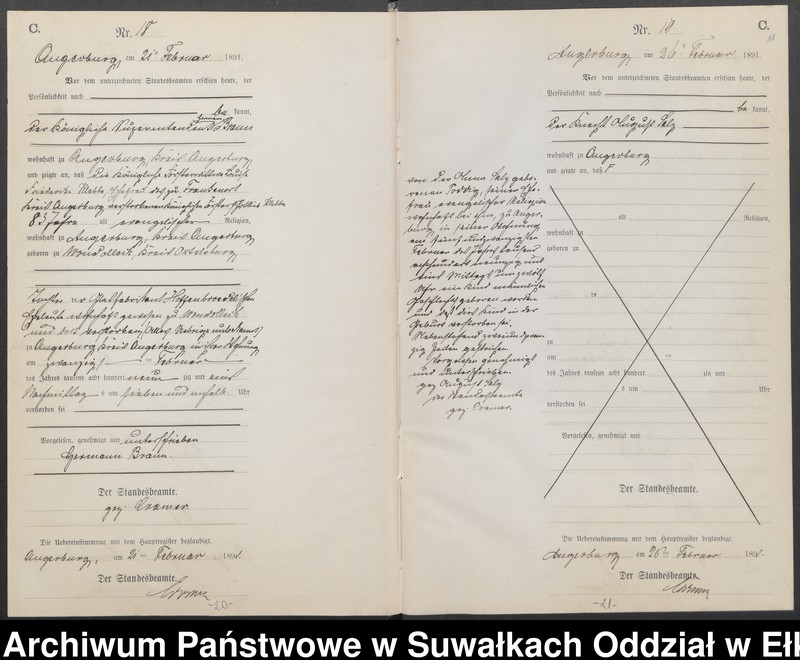 C.
Nr. 18
Angerburg, am 21ten Februar 1891.
Vor dem unterzeichneten Standesbeamten erschien heute, der
Persönlichkeit nach
be kannt,
der Königliche Hermann Braun
wohnhaft zu Angerburg, Kreis Angerburg
und zeigte an, daß die Königliche
Friederike
Kreis Angerburg verstorbenen
83 Jahre alt evangelischer Religion,
wohnhaft zu Angerburg, Kreis Angerburg
geboren zu Mondolleck, Kreis Ortelsburg
Eheleute gewesen zu Mondolleck
und dort verstorben
zu Angerburg Kreis Angerburg in ihrer Wohnung
am zwanzigsten Februar
des Jahres tausend acht hundert neun zig und eins
Nachmittags um sieben und einhalb Uhr
verstorben sei
Vorgelesen, genehmigt und unterschrieben
Hermann Braun
Der Standesbeamte.
gez. Cramer
Die Uebereinstimmung mit dem Hauptregister beglaubigt.
Angerburg, am 21ten Februar 1891.
Der Standesbeamte.
Cramer
-20-
Nr. 19
C.
Angerburg, am 26ten Februar 1891.
Vor dem unterzeichneten Standesbeamten erschien heute, der
Persönlichkeit nach
be kannt,
der Knecht August Salz
wohnhaft zu Angerburg
und zeigte an, daß
von der Anna Salz gebo-
renen seiner Ehe-
frau evangelischer Religion
wohnhaft bei ihm, zu Anger-
burg, in seiner Wohnung
am fünfundzwanzigsten
Februar des Jahres tausend
achthundert neunzig und
eins Mittags um zwölf
Uhr ein Kind männlichen
Geschlechts geboren worden
und daß das Kind in der
Geburt verstorben sei.
Nebenstehend zweiundzwan-
zig Zeilen gestrichen.
Vorgelesen genehmigt
und unterschrieben
gez August Salz
der Standesbeamte
gez. Cramer.
alt Religion,
wohnhaft zu
geboren zu
zu
zu
am ten
des Jahres tausend acht hundert zig und
um Uhr
verstorben sei
Vorgelesen, genehmigt und
Der Standesbeamte.
Die Uebereinstimmung mit dem Hauptregister beglaubigt.
Angerburg am 26ten Februar 1891.
Der Standesbeamte.
Cramer
-21-
Archiwum Państwowe w Suwałkach Oddział w Ełk